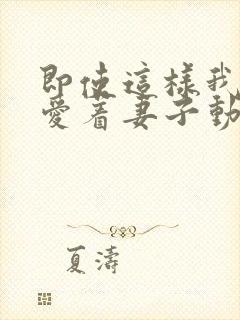 即使這樣我
愛着妻子動
夏濤